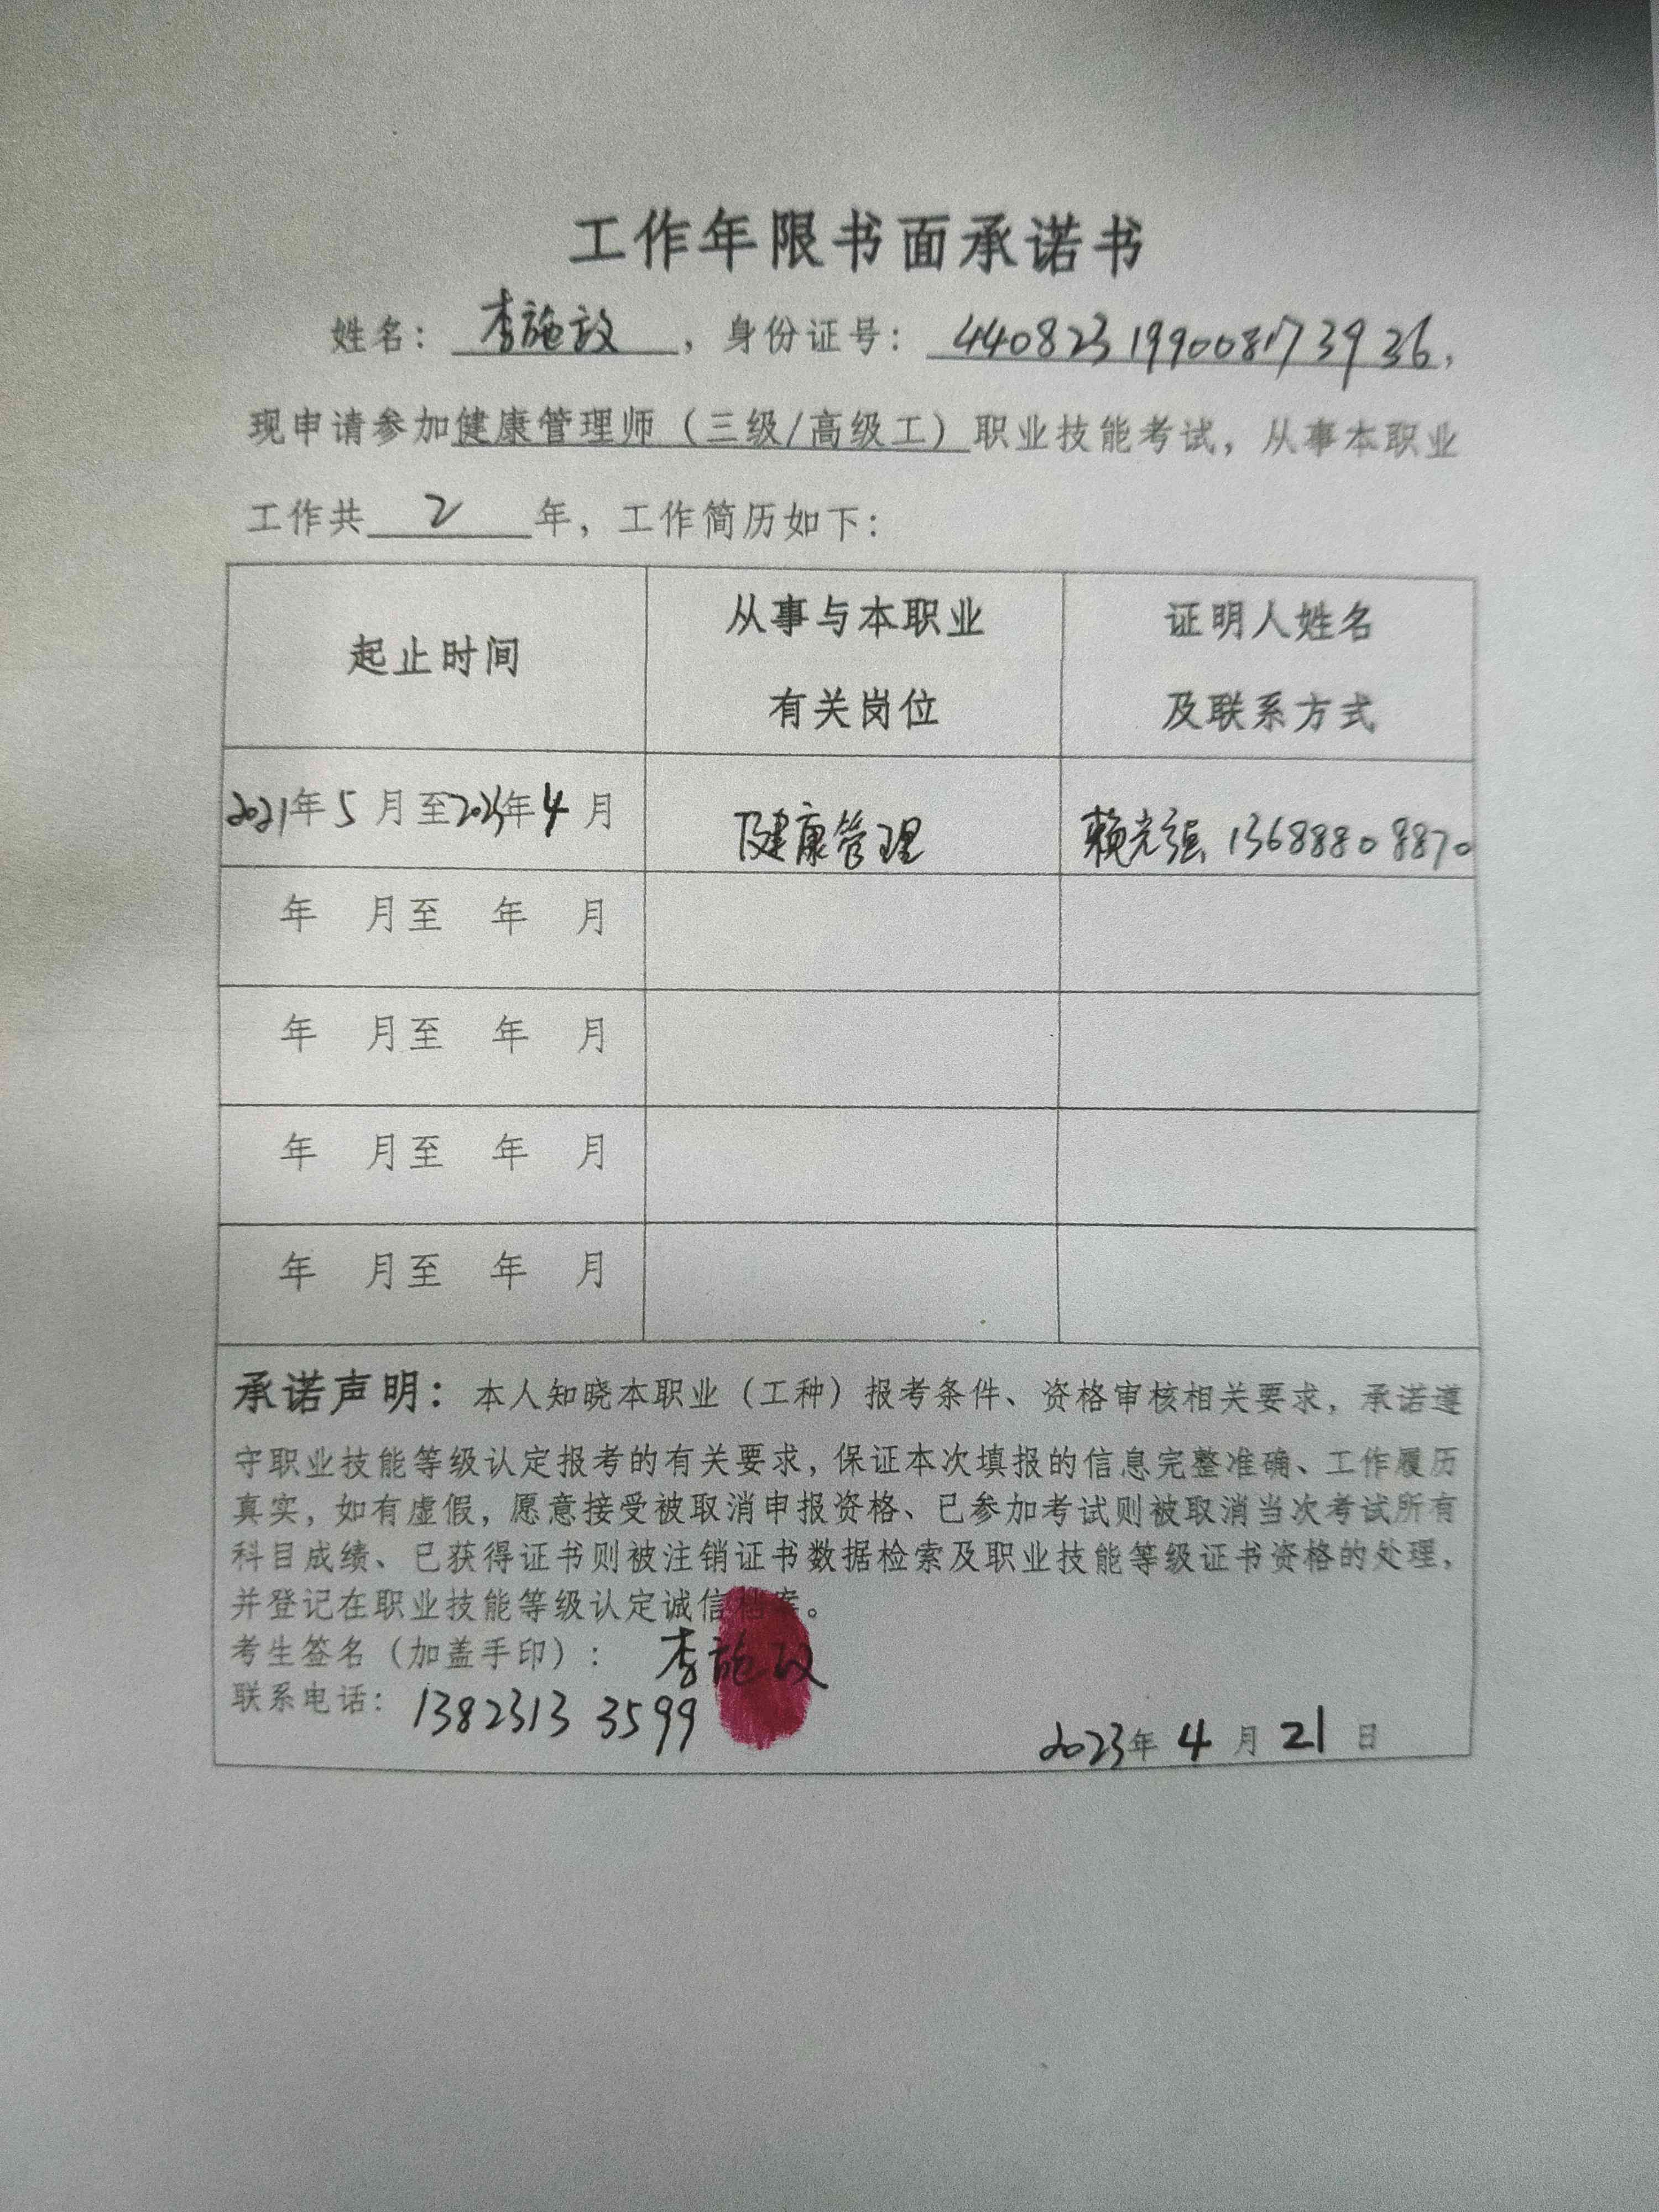 工作年限书面承诺书
姓名：李施政，身份证号：440823199008173936，
现申请参加健康管理师（三级/高级工）职业技能考试，从事本职业
工作共2年，工作简历如下：
起止时间
从事与本职业
有关岗位
证明人姓名
及联系方式
2021年5月至2023年4月 健康管理 赖光强 13688808870
年 月至 年 月
年 月至 年 月
年 月至 年 月
年 月至 年 月
承诺声明：本人知晓本职业（工种）报考条件、资格审核相关要求，承诺遵
守职业技能等级认定报考的有关要求，保证本次填报的信息完整准确、工作履历
真实，如有虚假，愿意接受被取消申报资格、已参加考试则被取消当次考试所有
科目成绩、已获得证书则被注销证书数据检索及职业技能等级证书资格的处理，
并登记在职业技能等级认定诚信档案。
考生签名（加盖手印）：李施政
联系电话：13823133599
2023年4月21日